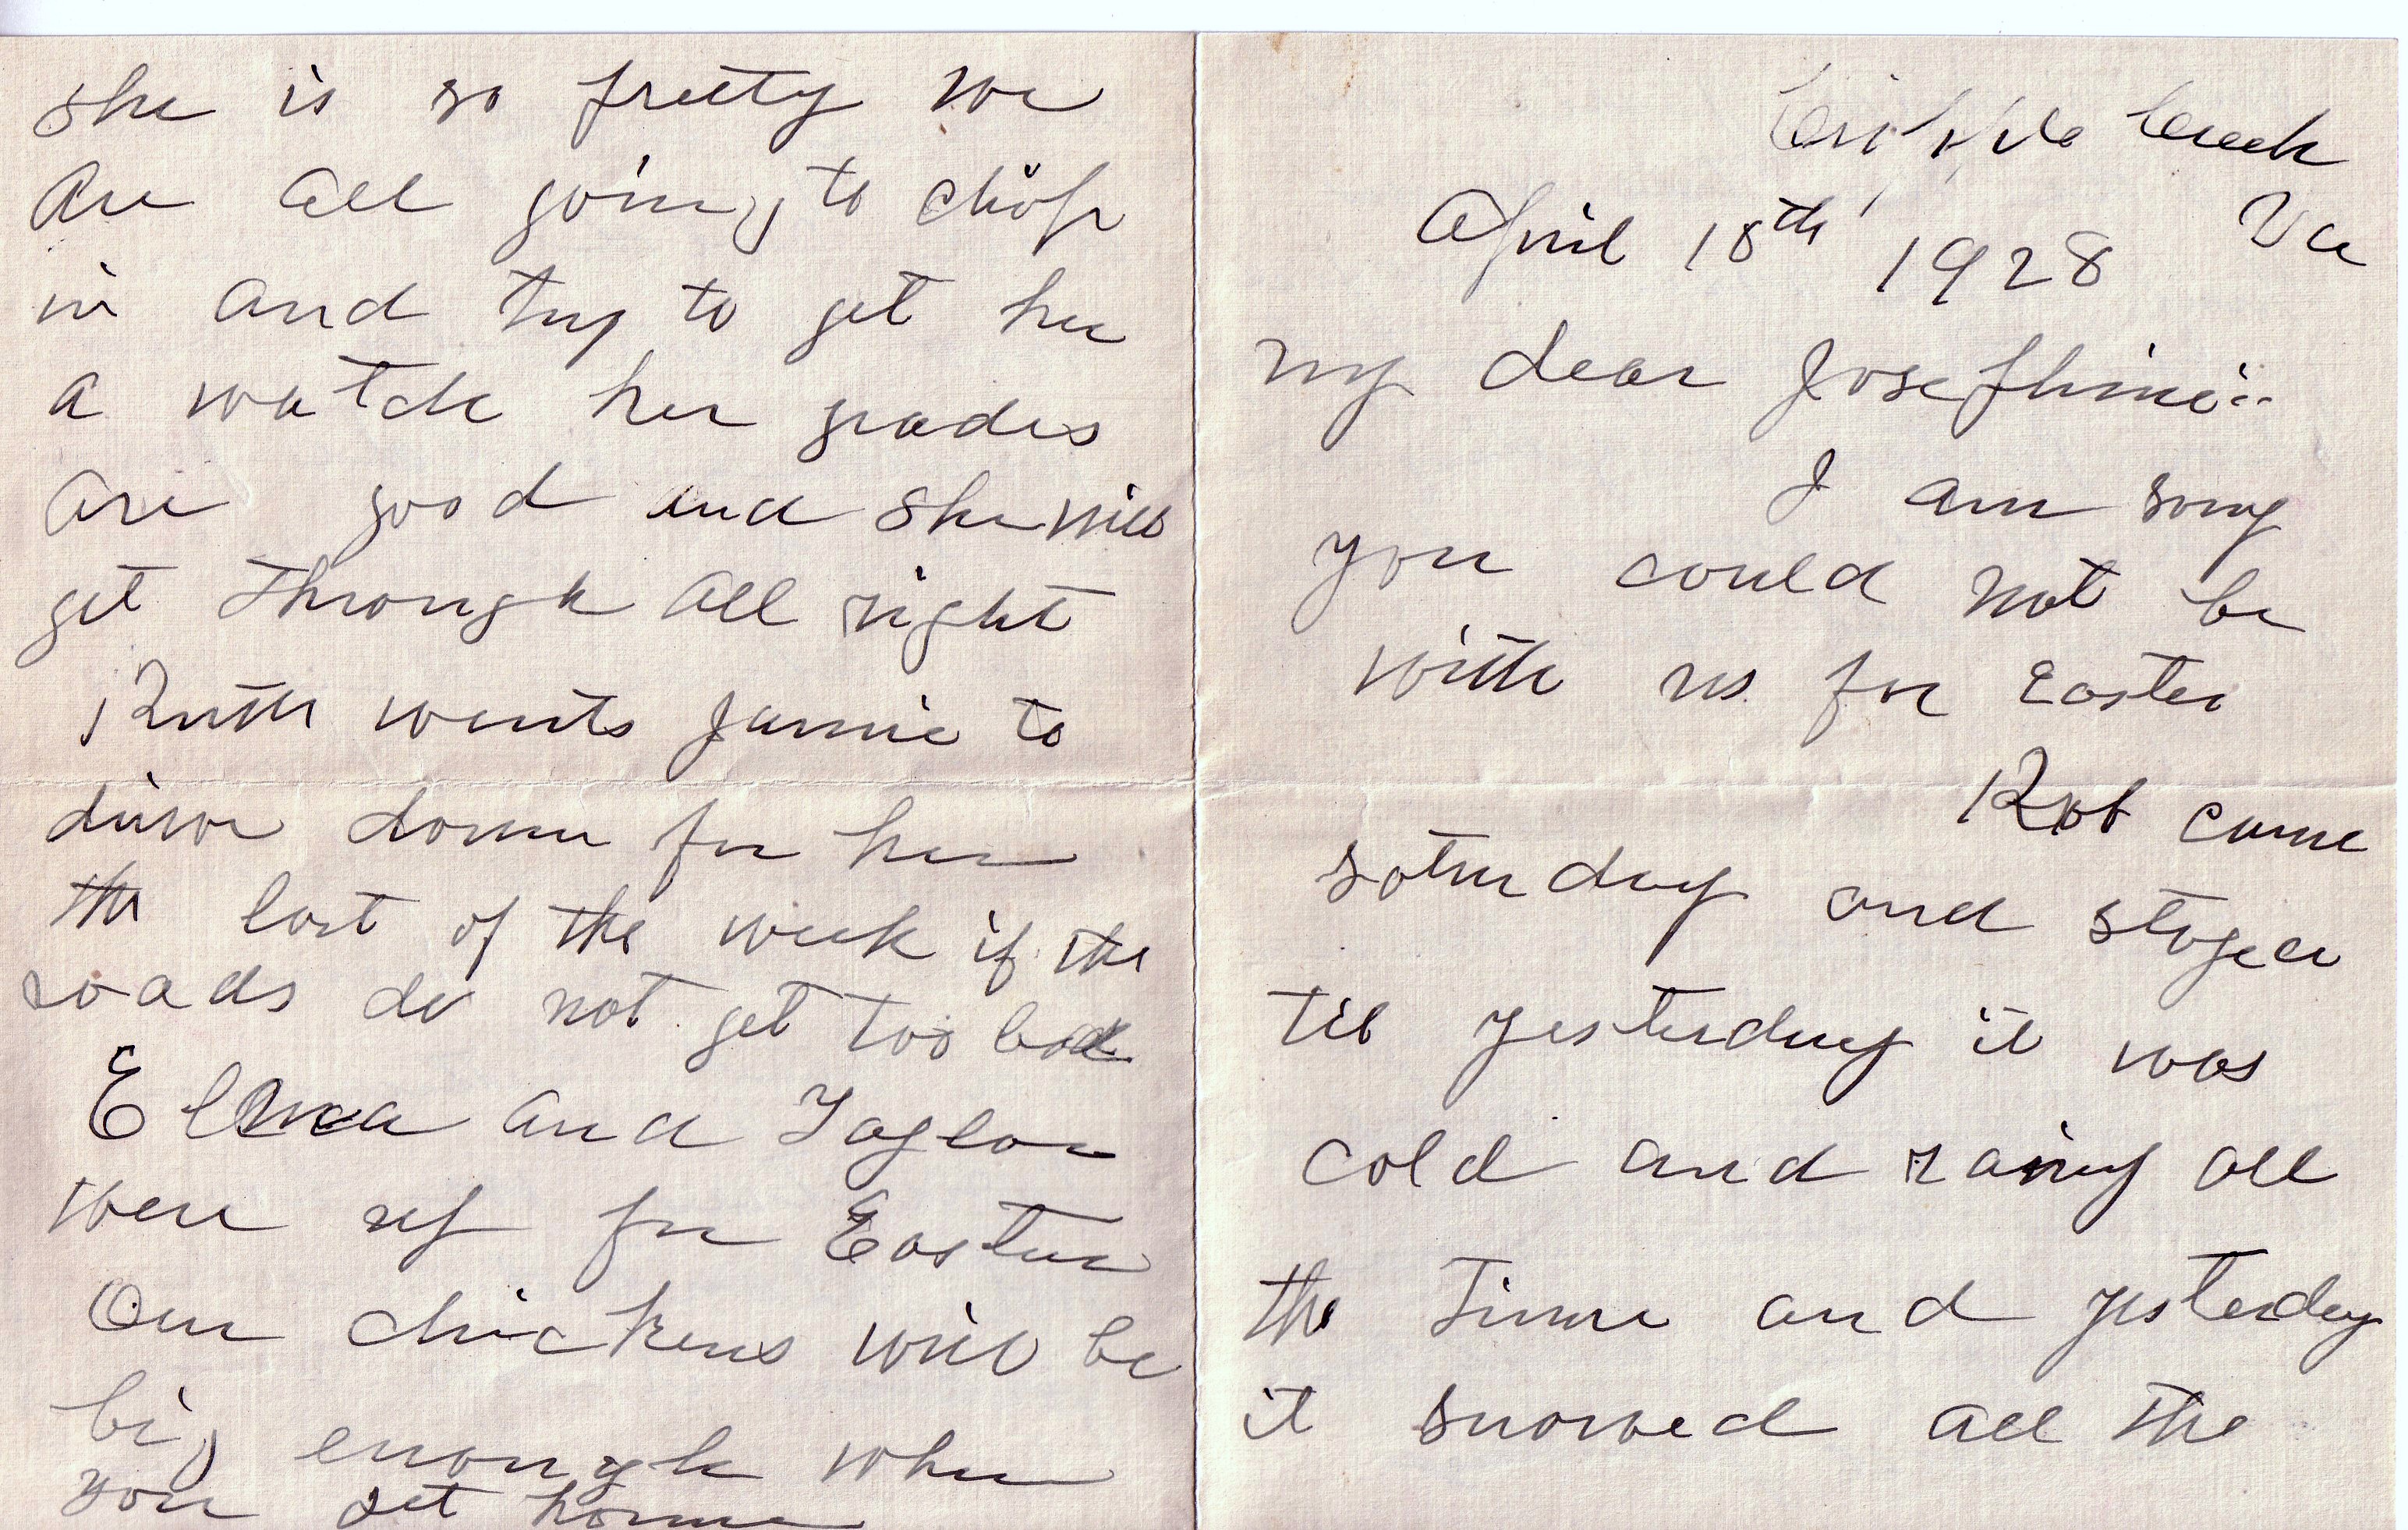 Cripple Creek
Va
April 18th 1928
my dear Josephine:-
I am sorry
you could not be
with us for Easter
Rob came
saturday and stayed
til yesterday it was
cold and rainy all
the Time and yesterday
it snowed all the
she is so pretty we
are all going to chip
in and try to get her
a watch her grades
are good and she will
get through all right
Ruth wants Jamie to
drive down for her
the last of the week if the
roads do not get too bad
Elmer and Taylor
were up for Easter
Our chickens will be
big enough when
you get home